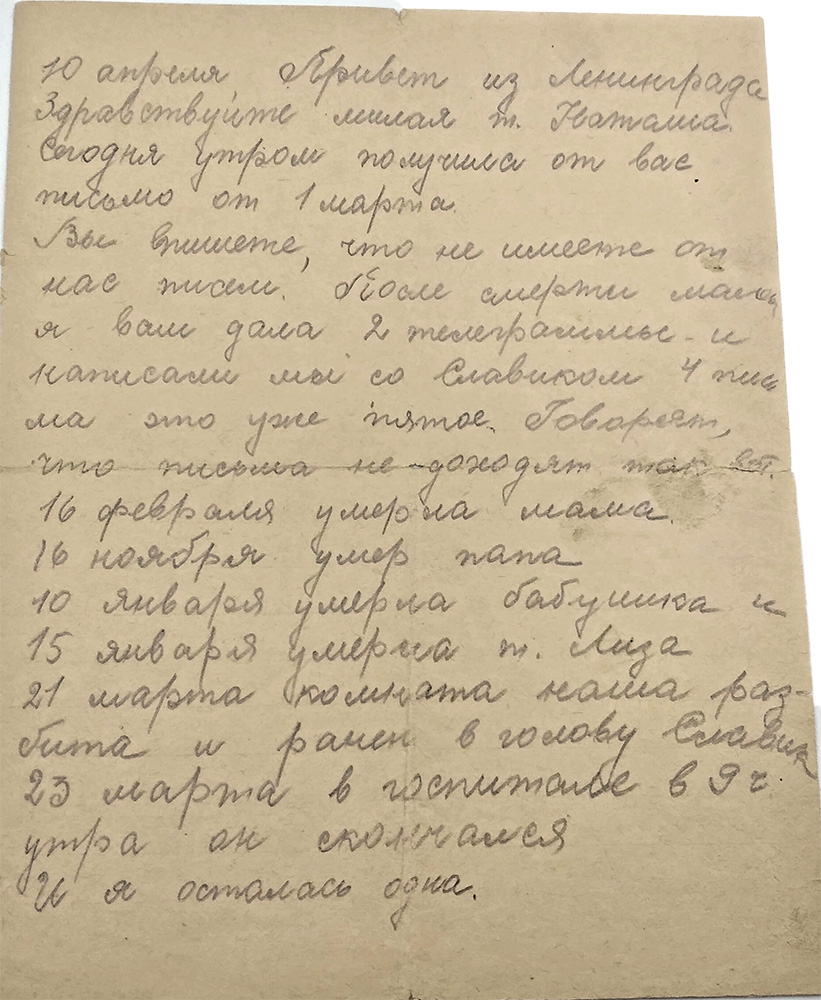 10 апреля Привет из Ленинграда
Здравствуйте милая т. Наташа.
Сегодня утром получила от вас
письмо от 1 марта.
Вы пишете, что не имеете от
нас писем. После смерти мамы
я вам дала 2 телеграммы - и
написали мы со Славиком 4 пись
ма это уже пятое. Говорят,
что письма не доходят так вот.
16 февраля умерла мама.
16 ноября умер папа
10 января умерла бабушка и
15 января умерла т. Лиза
21 марта комната наша раз-
бита и ранен в голову Славик
23 марта в госпитале в 9 ч
утра он скончался
И я осталась одна.